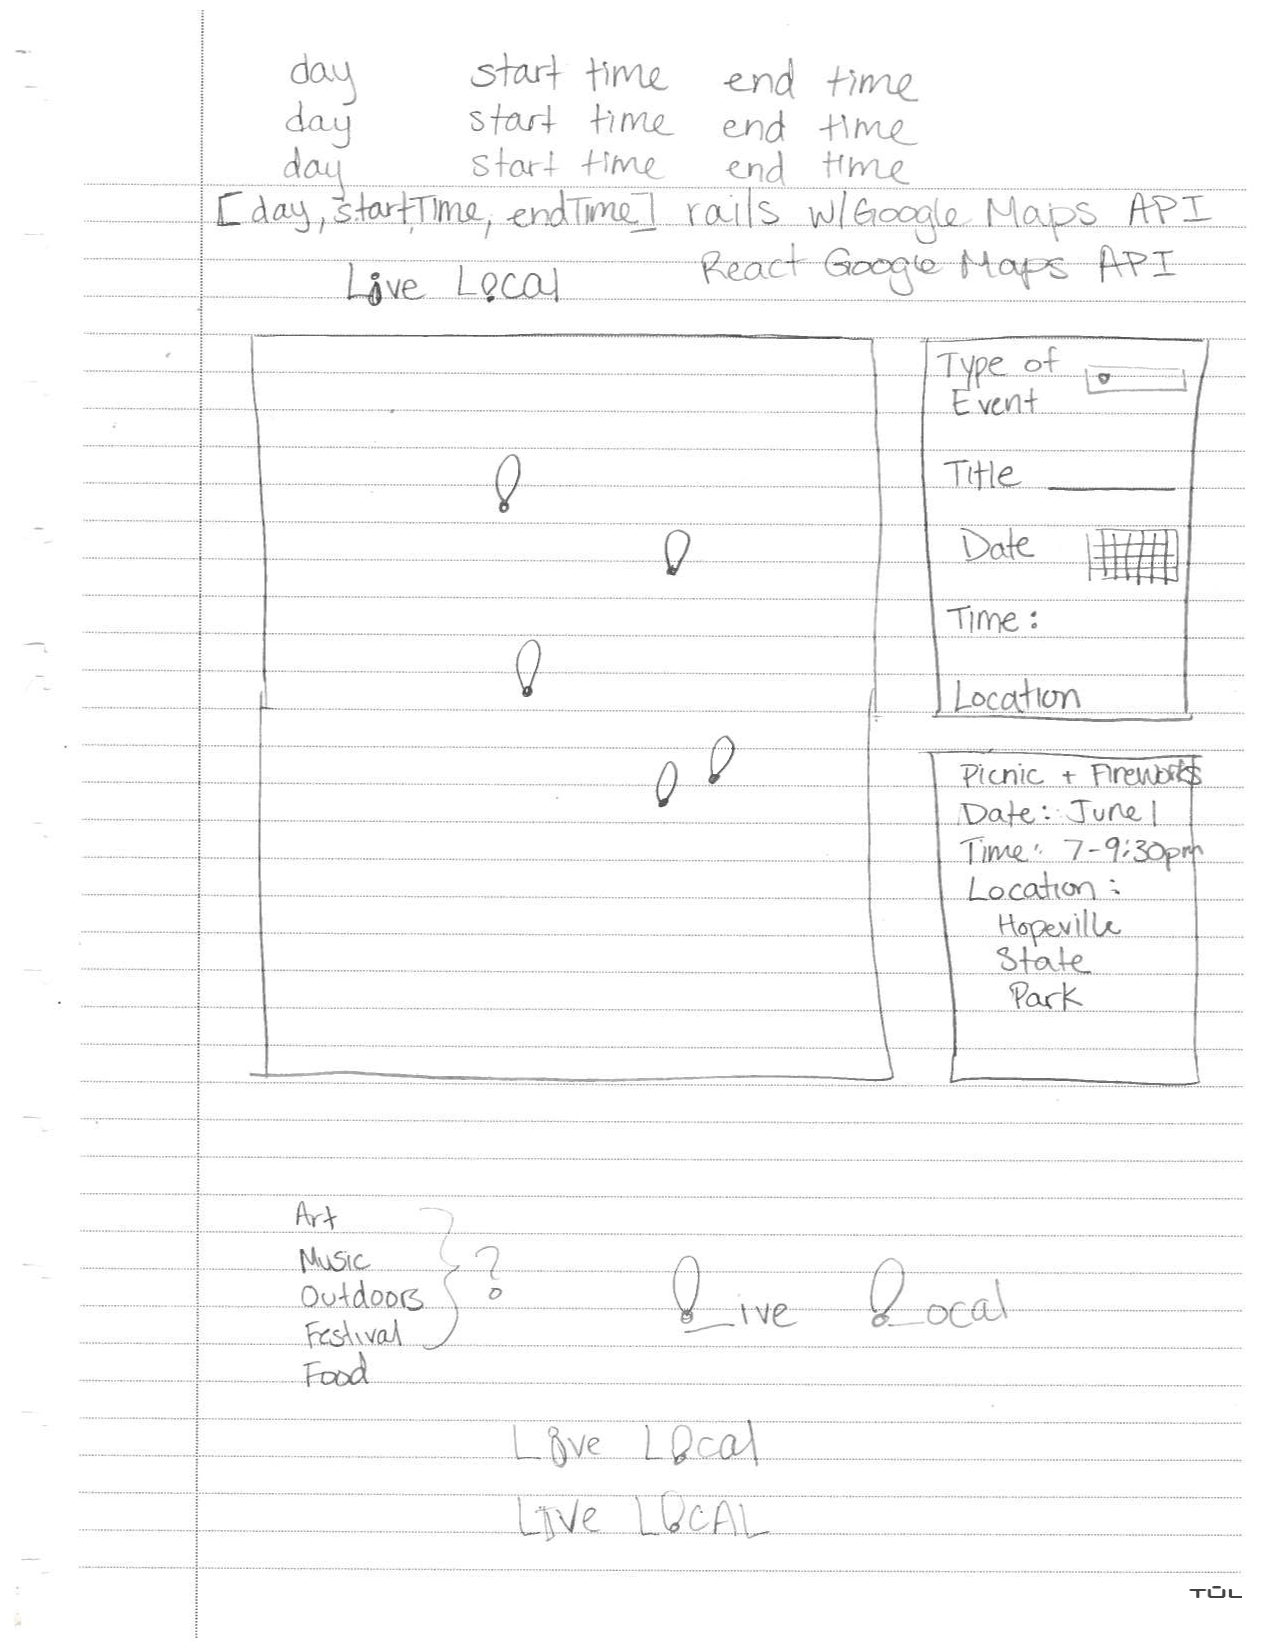 day start time end time
day start time end time
day start time end time
[day, startTime, endTime] rails w/Google Maps API
React Google Maps API
Live Local
Type of
Event
Title
Date
Time:
Location
Picnic + Fireworks
Date: June 1
Time: 7-9:30pm
Location:
Hopeville
State
Park
Art
Music
Outdoors
Festival
Food
?
Live Local
Live Local
LIVE LOCAL
TUL